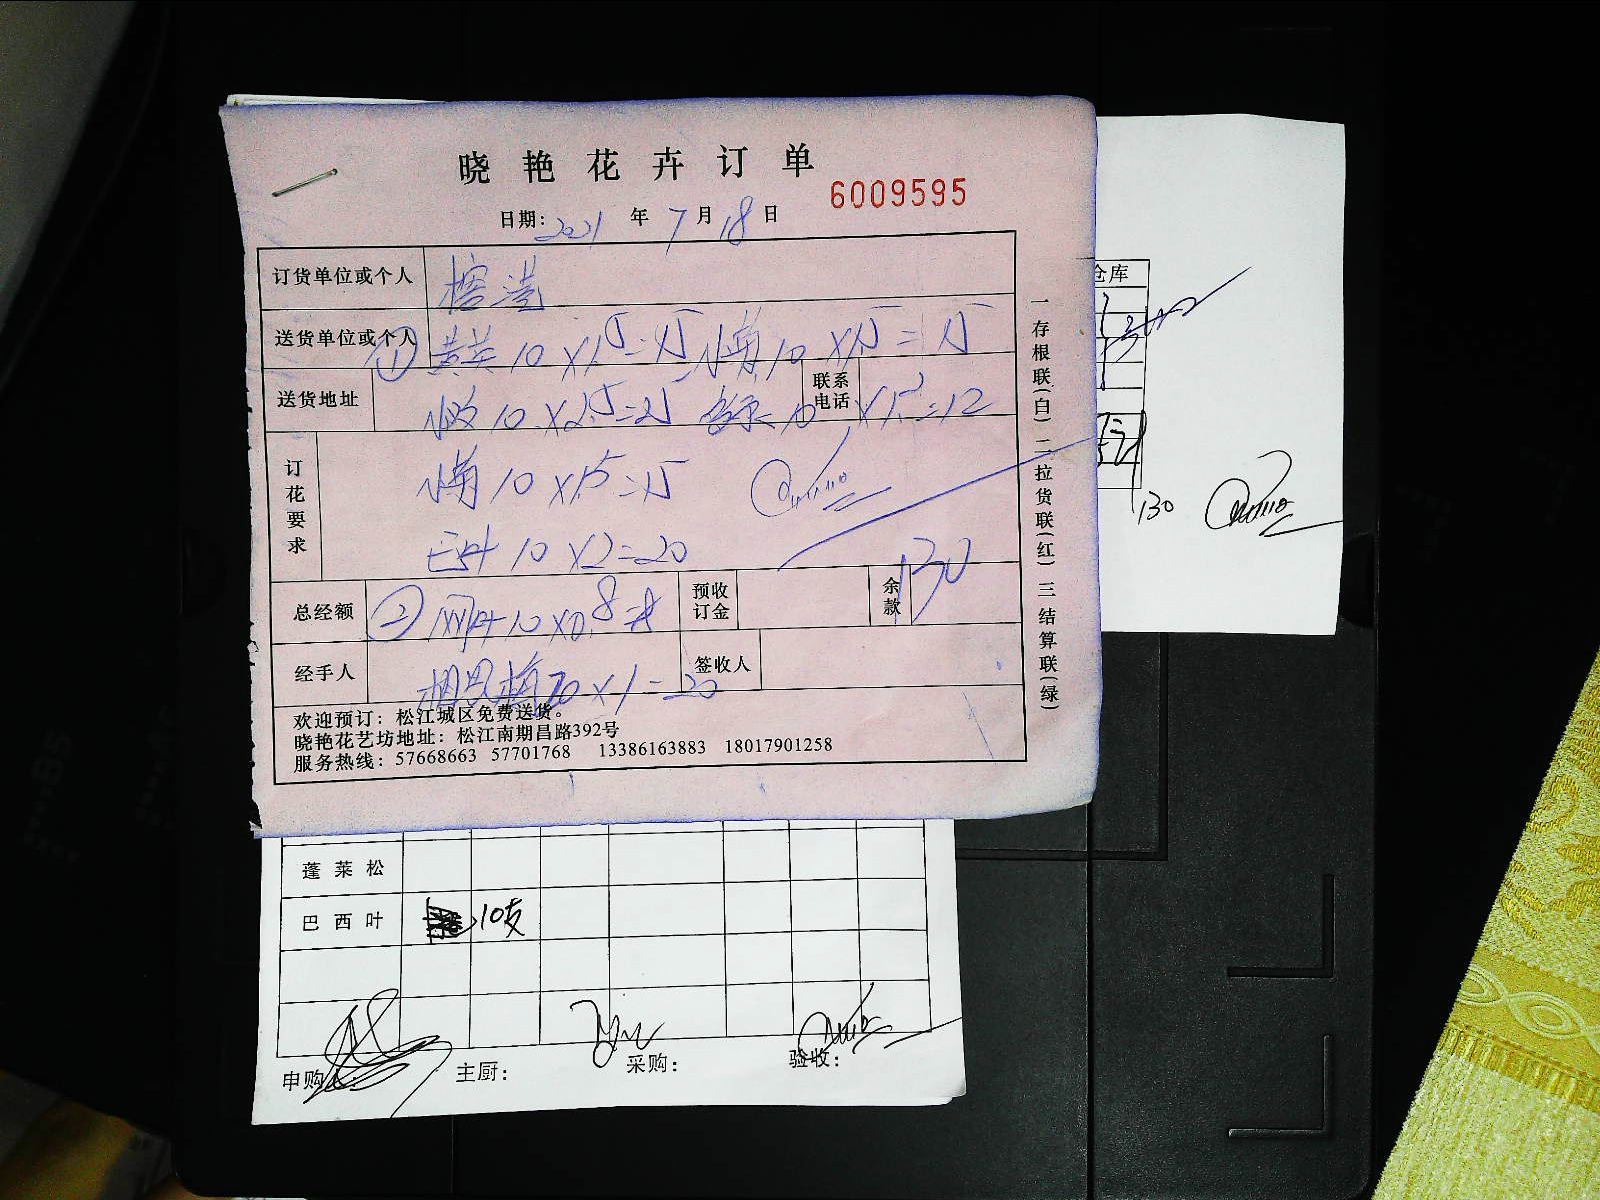 晓艳花卉订单
6009595
日期: 2021 年 7 月 18 日
订货单位或个人
送货单位或个人 ① 黄英 10 X1.5=15 小菊 10 X1.5=15
送货地址 10 X2.5=25 10
联系电话
订花要求
小菊 10 X1.5=15
巴叶 10 X2=20
总经额 ② 10 X0.8=8
预收订金
余款 130
经手人 相思梅 20 X1=20
签收人
欢迎预订：松江城区免费送货。
晓艳花艺坊地址：松江南期昌路392号
服务热线：57668663 57701768 13386163883 18017901258
一存根联(白) 二拉货联(红) 三结算联(绿)
仓库
130
蓬莱松
巴西叶 10支
申购
主厨：
采购：
验收：